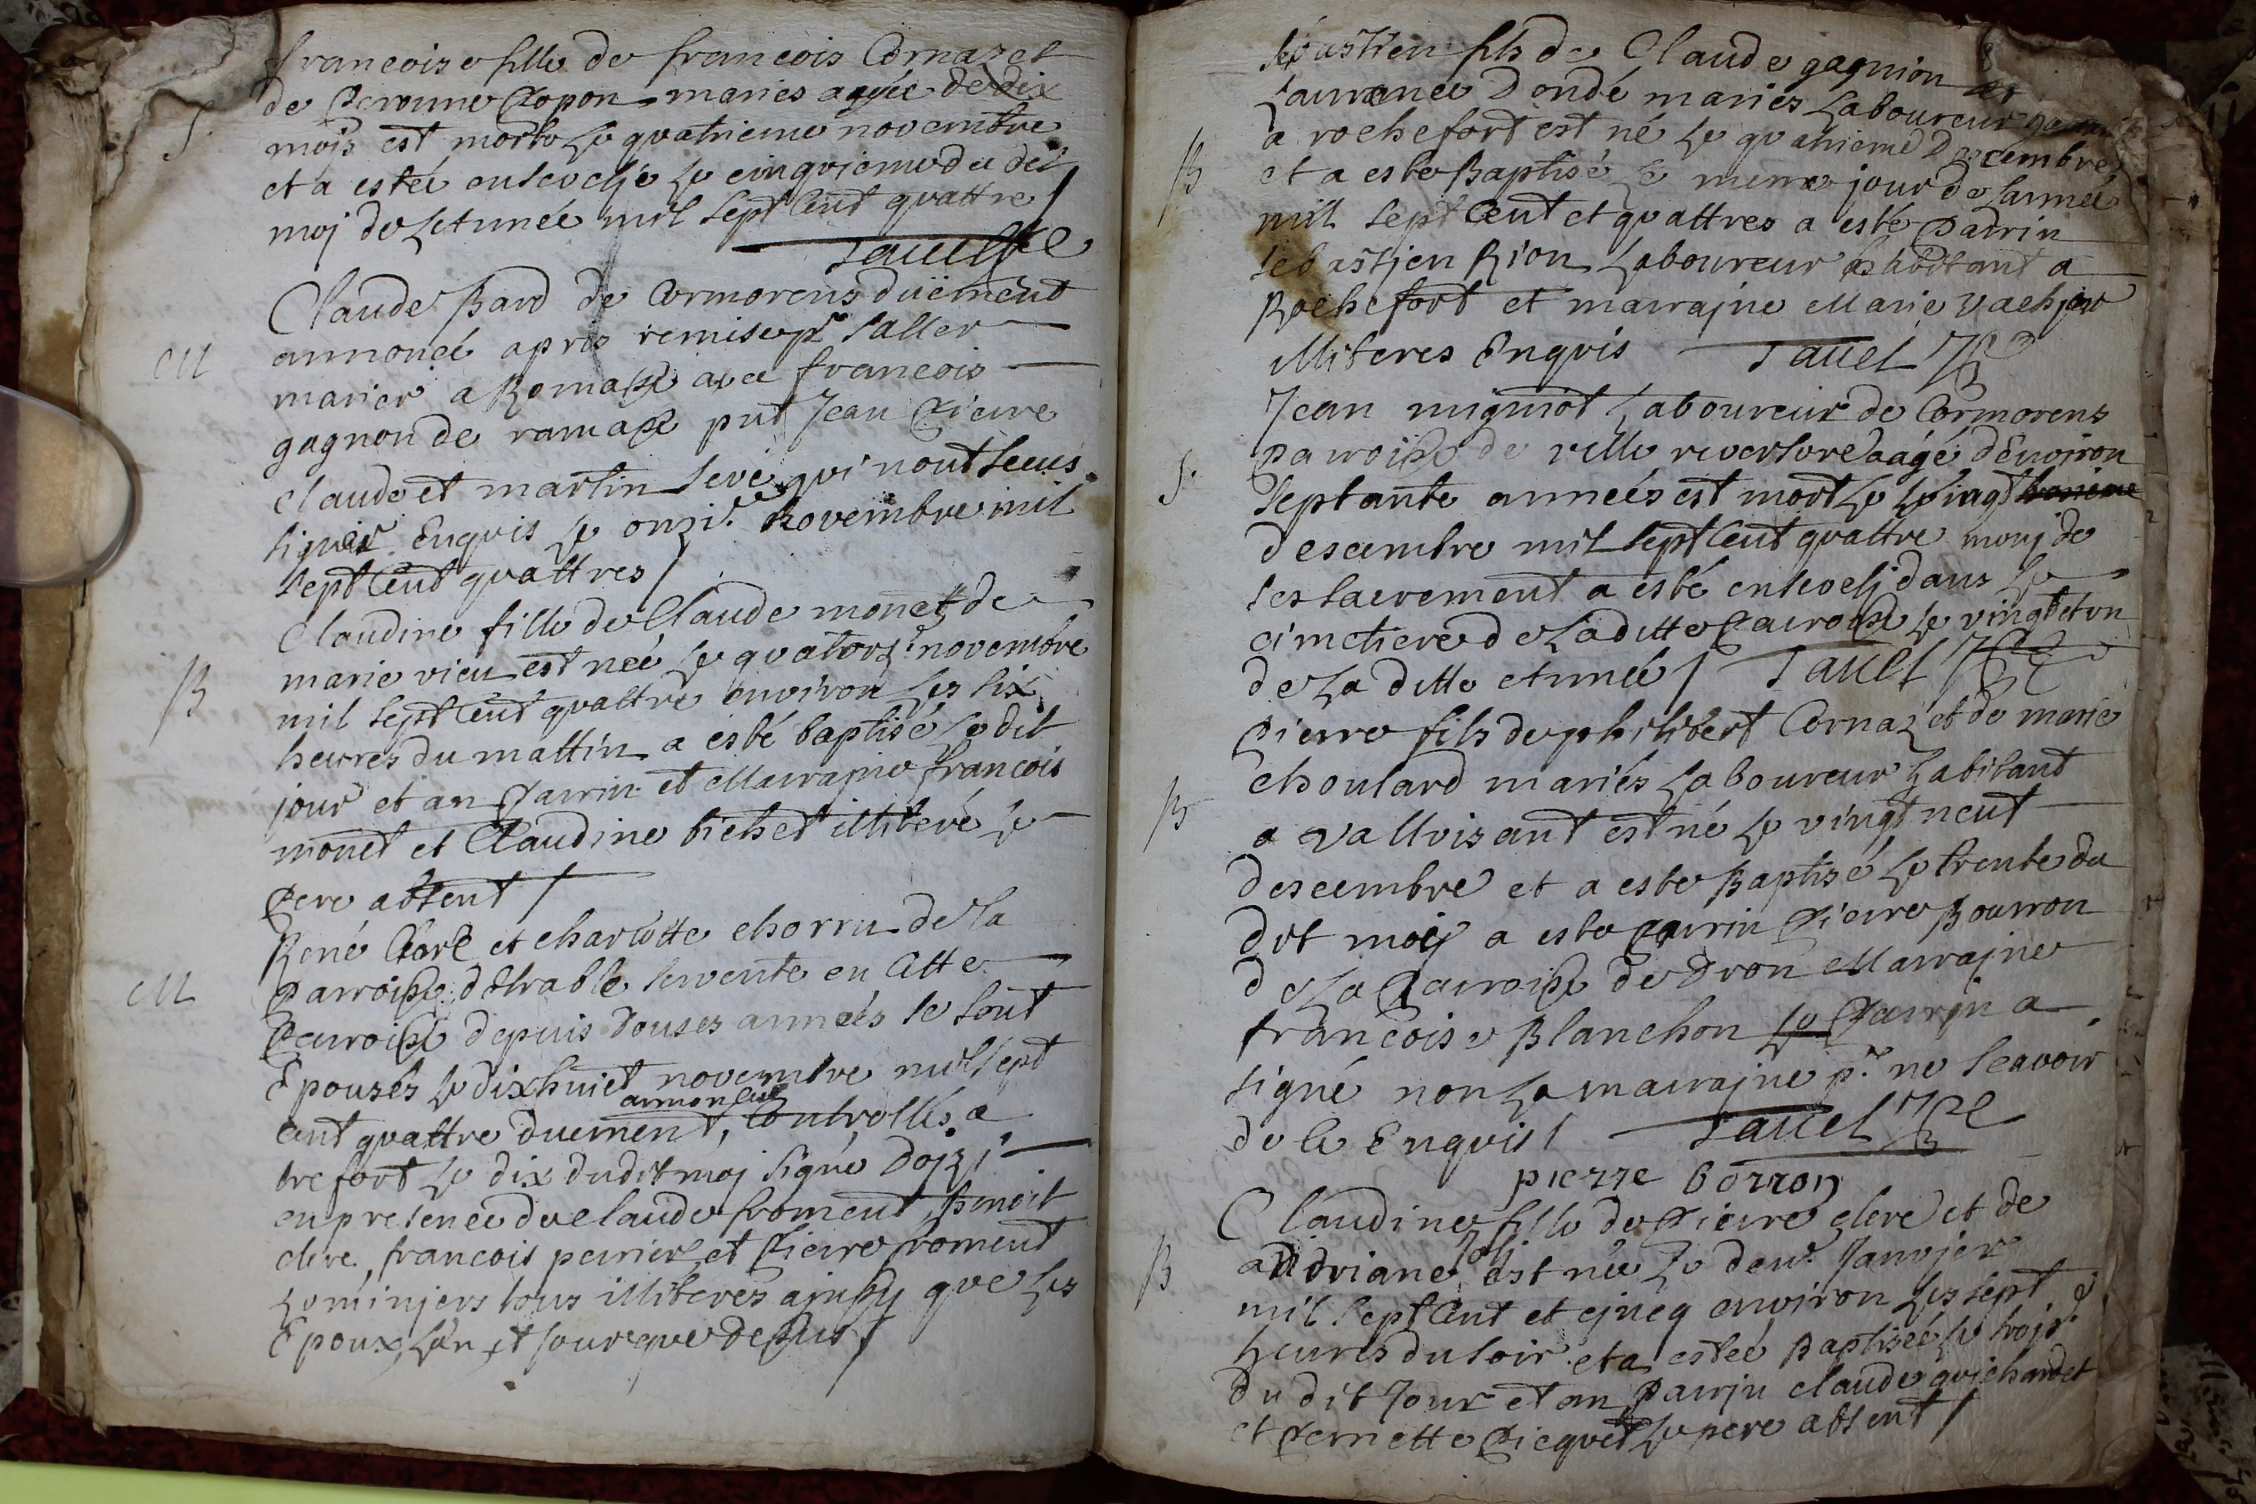 francoise fille de francois Cornaz et
de Peronne Popon maries agée de dix
S.
mojs est morte le quatrieme novembre
et a estée ensevelje le cinqviemede dit
moj de Letnnée mil sept Cent quattre /
Tavel
Claude Bard de Cormorens düement
M
annoncé apres remise pr saller
marier a Romasse avec francois
gagnon de ramasse pnt Jean Pierre
Claude et martin seve qvi nont sceus
signer Enqvis le onzie. Novembre mil
sept Cent quattres /
Claudine fille de Claude monet de
B
marie vieu est neé le quatorze novembre
mil sept Cent quattre environ les six
heures du mattin a esté baptisé le dit
jour et an Parrin et Marrajne francois
monet et Claudine bichet illiteré le
Pere absent /
René Clere et charlotte chorru de la
M
Parroisse d'Etrable servente en Cette
Parroisse depuis douses années se sont
Epousés le dixhuict novembre mil sept
annonces
cent quattre duement, Controllés a
trefort le dix dudit moj signé Dojz /
en presence de claude froment, benoit
clere, francois perrier et Pierre froment
tous illiterés ajnsy que les
Epoux, lan et jour que dessus /
sebastien fils de Claude gagnion et
Laurence Dondé mariés Laboureur
B
a rochefort est né le quatrieme Decembre
et a este Baptisé le meme jour de Lannee
mil sept Cent et quattres a esté Parrin
sebastjen Rion Laboureur habitant a
Rochefort et marrajne Marie vachjer
illiteres Enqvis Tavel
Jean mignot Laboureur de Cormorens
S.
parroisse de ville reversure aagé d'Environ
septante annees est mort le vingt
desembre mil sept Cent quattre munj de
ses sacrement a esté enseveli dans le
cimetiere de La ditte Parroisse le vingt et un
de La ditte etnneé / Tavel
Pierre fils de philibert Cornaz et de marie
choulard mariés Laboureur habitant
B
a Vallvisant est né le vingt neuf
desembre et a este Baptisé le trente du
dit moy a este parrin Pierre Bourron
de La Parroisse de Dron Marrajne
francoise Blanchon le Parrin a
signé non La marrajne pr. ne scavoir
de ce Enqvis / Tavel
pierre borron
Claudine fille de Pierre clere et de
Jolj
B
Andriane est née le deux. Janvjer
mil sept Cent et cjncq environ les sept
heures du soir et a estée Baptiseé le trojs
du dit Jour et an Parrjn claude gvichardet
et Pernette Picquet le pere absent /